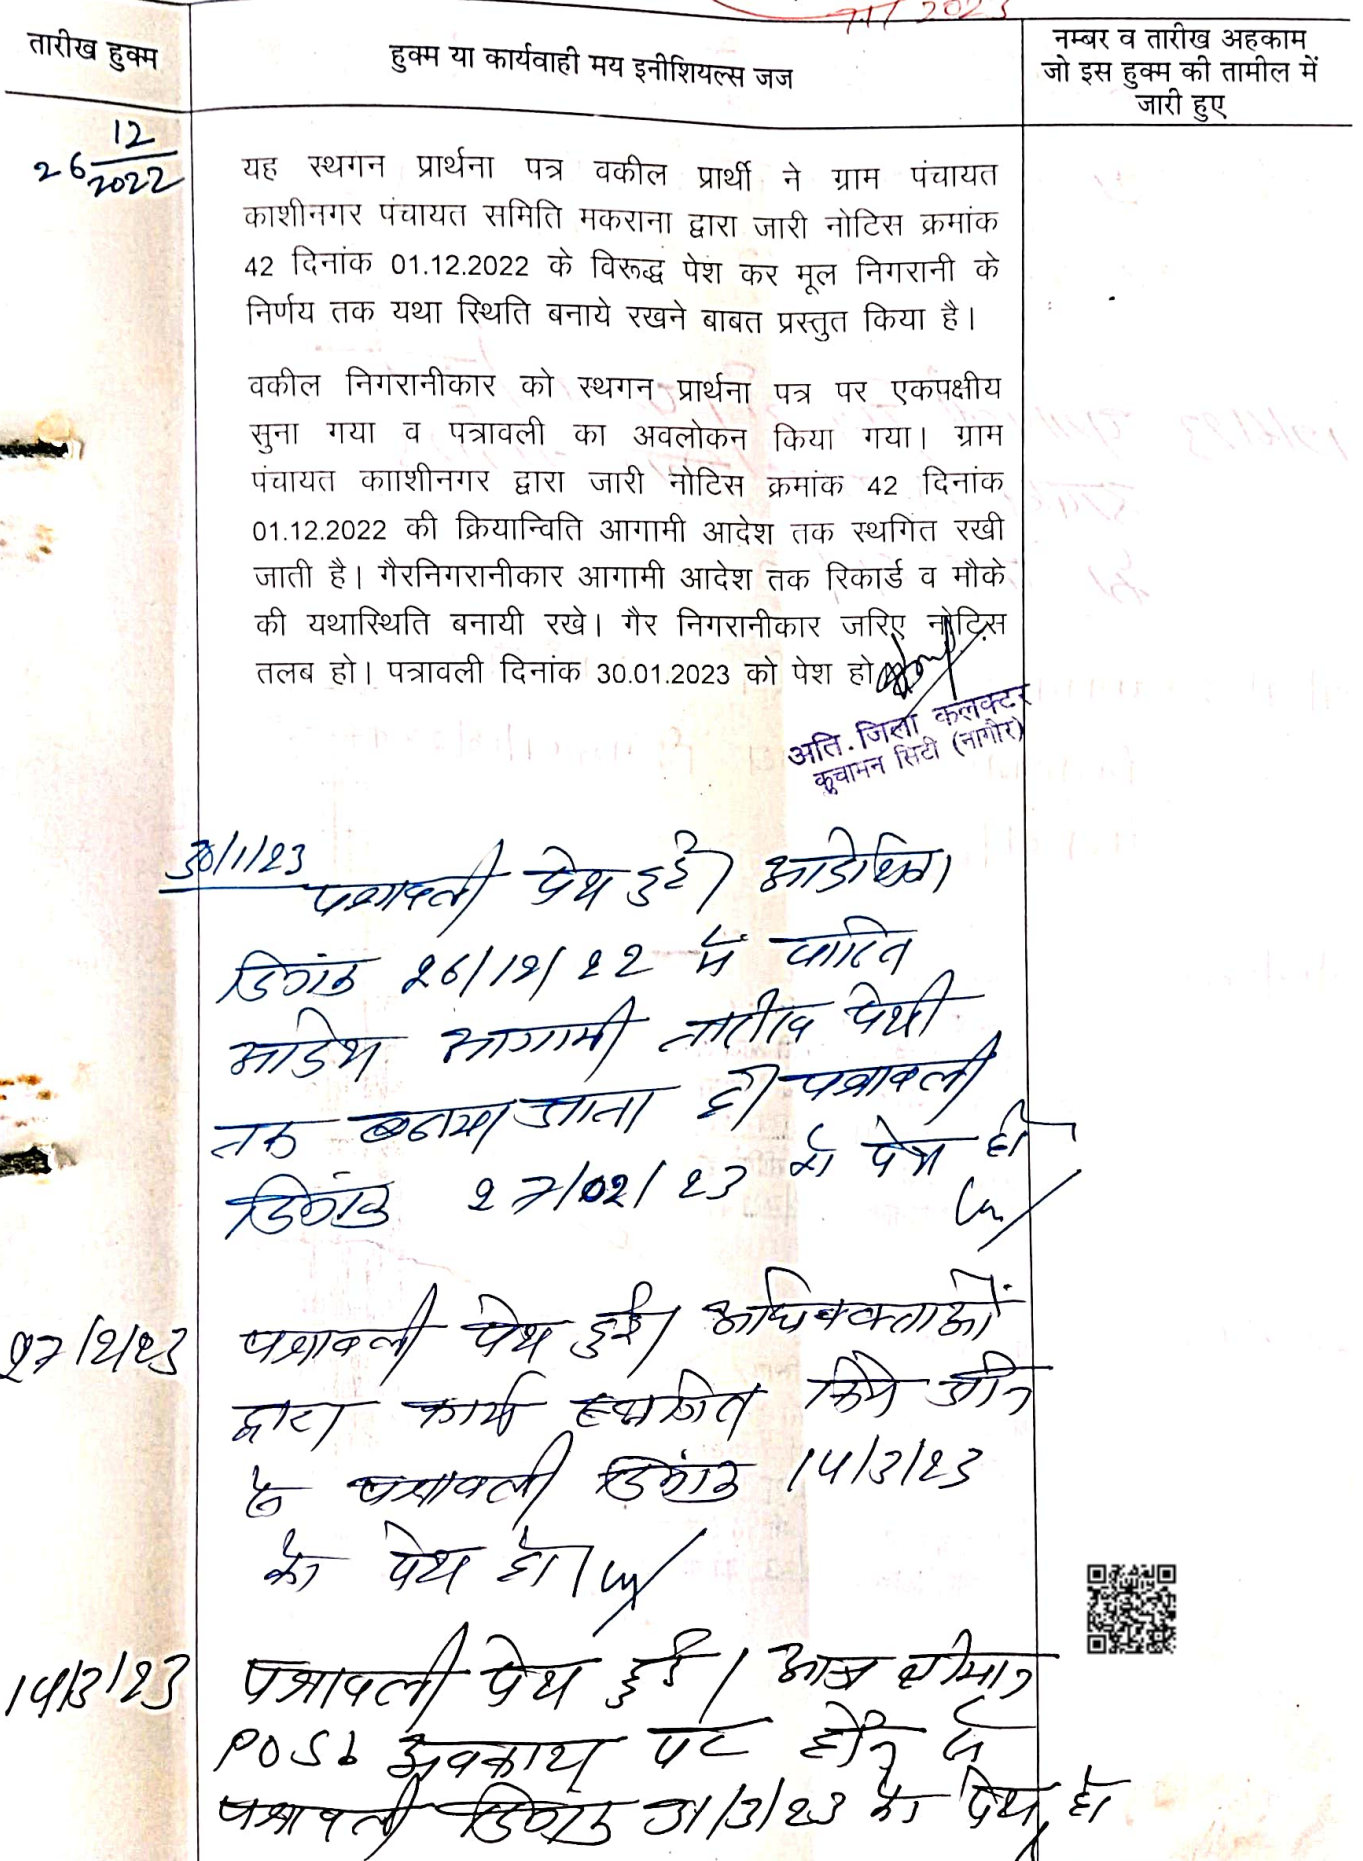 2023
तारीख हुक्म
हुक्म या कार्यवाही मय इनीशियल्स जज
नम्बर व तारीख अहकाम
जो इस हुक्म की तामील में
जारी हुए
26 12/2022
यह स्थगन प्रार्थना पत्र वकील प्रार्थी ने ग्राम पंचायत
काशीनगर पंचायत समिति मकराना द्वारा जारी नोटिस क्रमांक
42 दिनांक 01.12.2022 के विरूद्ध पेश कर मूल निगरानी के
निर्णय तक यथा स्थिति बनाये रखने बाबत प्रस्तुत किया है।
वकील निगरानीकार को स्थगन प्रार्थना पत्र पर एकपक्षीय
सुना गया व पत्रावली का अवलोकन किया गया। ग्राम
पंचायत कााशीनगर द्वारा जारी नोटिस क्रमांक 42 दिनांक
01.12.2022 की क्रियान्विति आगामी आदेश तक स्थगित रखी
जाती है। गैरनिगरानीकार आगामी आदेश तक रिकार्ड व मौके
की यथास्थिति बनायी रखे। गैर निगरानीकार जरिए नोटिस
तलब हो। पत्रावली दिनांक 30.01.2023 को पेश हो
अति. जिला कलक्टर
कुचामन सिटी (नागौर)
30/1/23
पत्रावली पेश हुई। आदेशिका
दिनांक 26/12/22 में पारित
आदेश आगामी तारीख पेशी
तक बढाया जाता है। पत्रावली
दिनांक 27/02/23 को पेश हो
27/2/23 पत्रावली पेश हुई। अधिवक्ताओं
द्वारा कार्य स्थगित किये जाने
से पत्रावली दिनांक 14/3/23
को पेश हो।
14/3/23 पत्रावली पेश हुई। आज श्रीमान
अवकाश पर होने से
पत्रावली दिनांक 31/3/23 को पेश हो